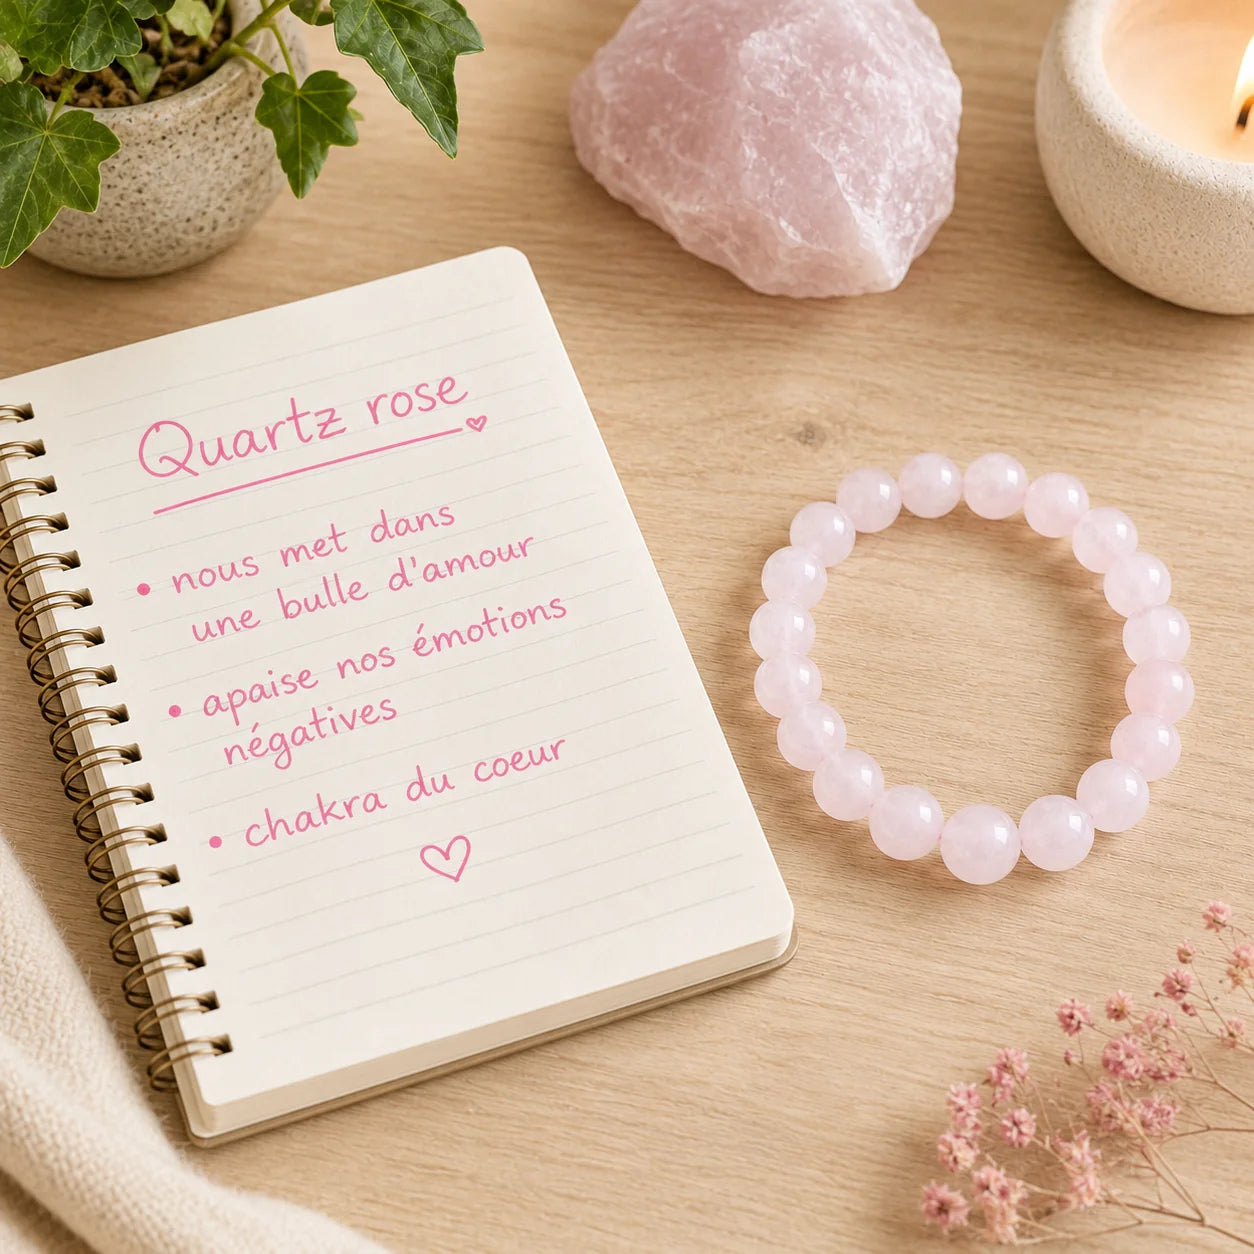 Quartz rose
• nous met dans
une bulle d'amour
• apaise nos émotions
négatives
• chakra du coeur